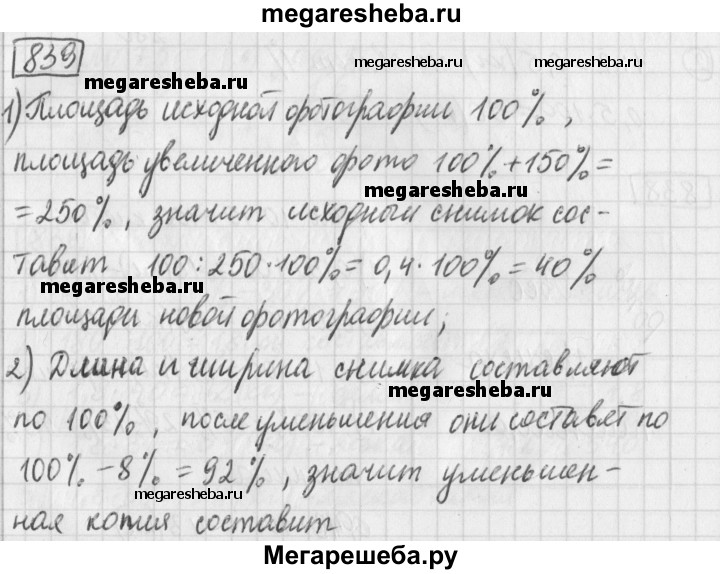 megaresheba.ru
839
megaresheba.ru
megaresheba.ru
megaresheba.ru
1) Площадь исходной фотографии 100%,
площадь увеличенного фото 100%+150%=
megaresheba.ru
=250%, значит исходный снимок сос-
тавит 100:250·100%=0,4·100%=40%
megaresheba.ru
площади новой фотографии;
2) Длина и ширина снимка составляют
megaresheba.ru
по 100%, после уменьшения они составят по
100%-8%=92%, значит уменьшен-
megaresheba.ru
megaresheba.ru
ная копия составит
Мегарешеба.ру